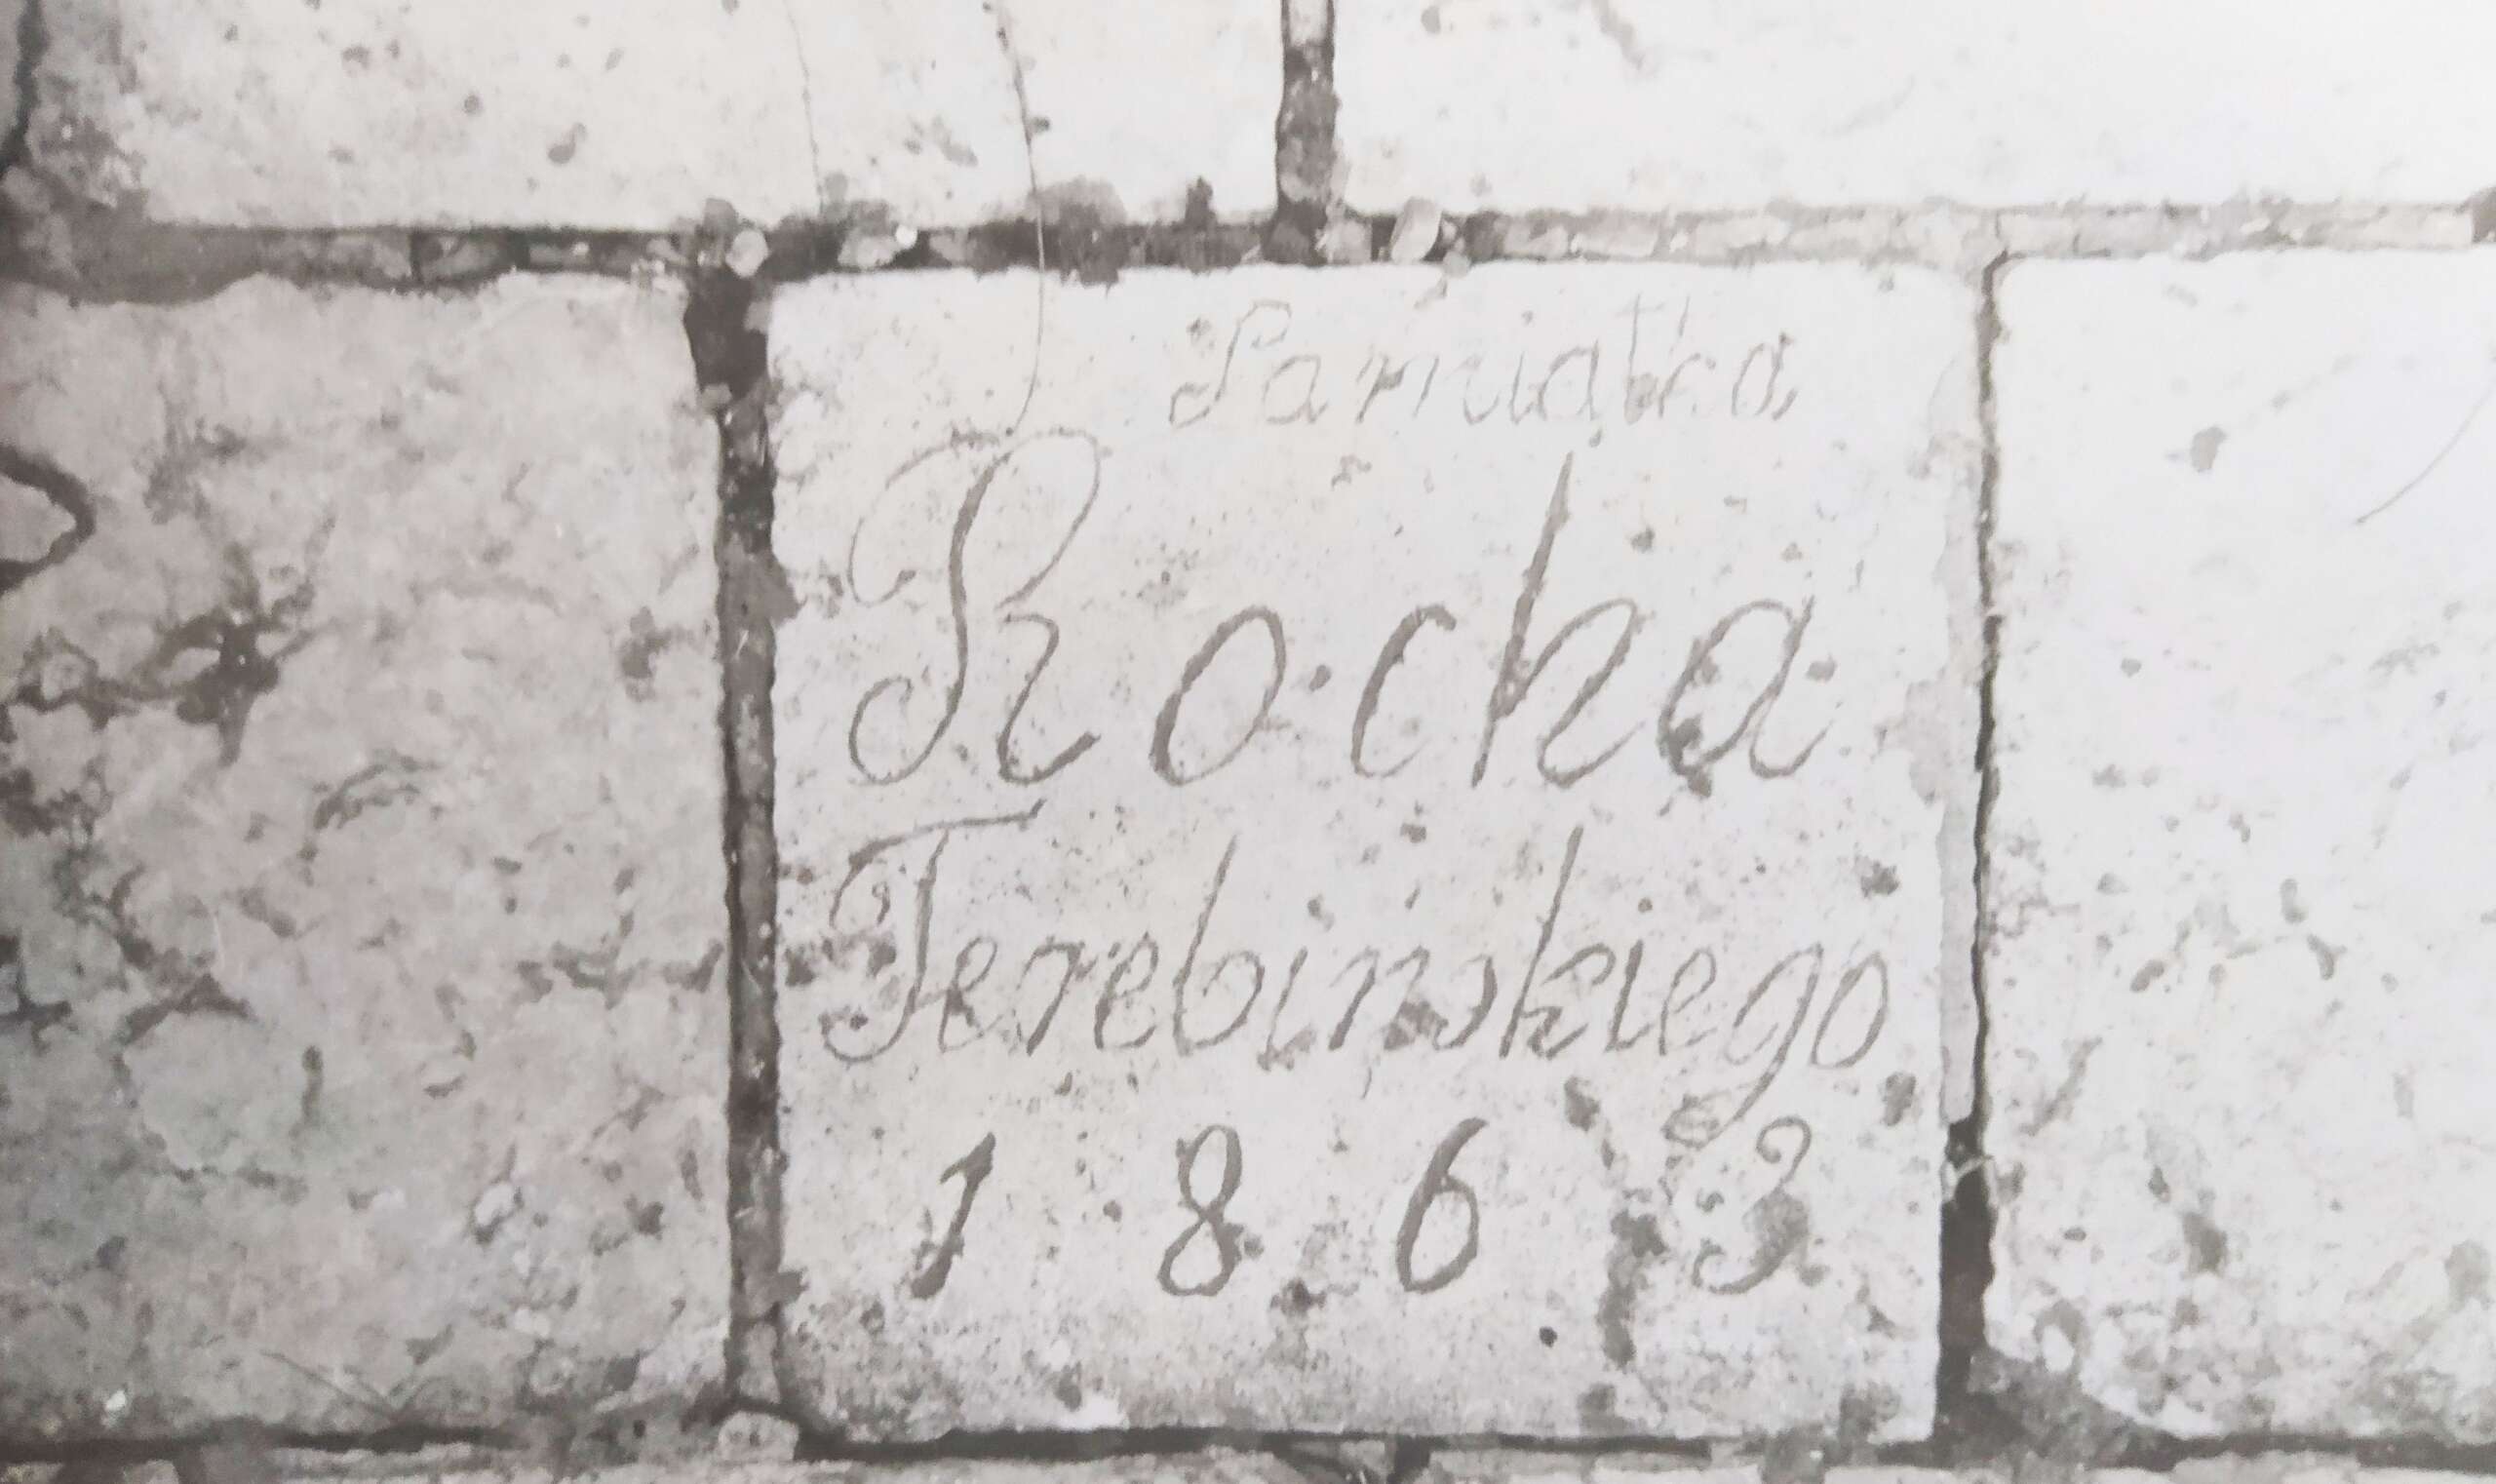 Pamiątka
Rocha
Terebińskiego
1863